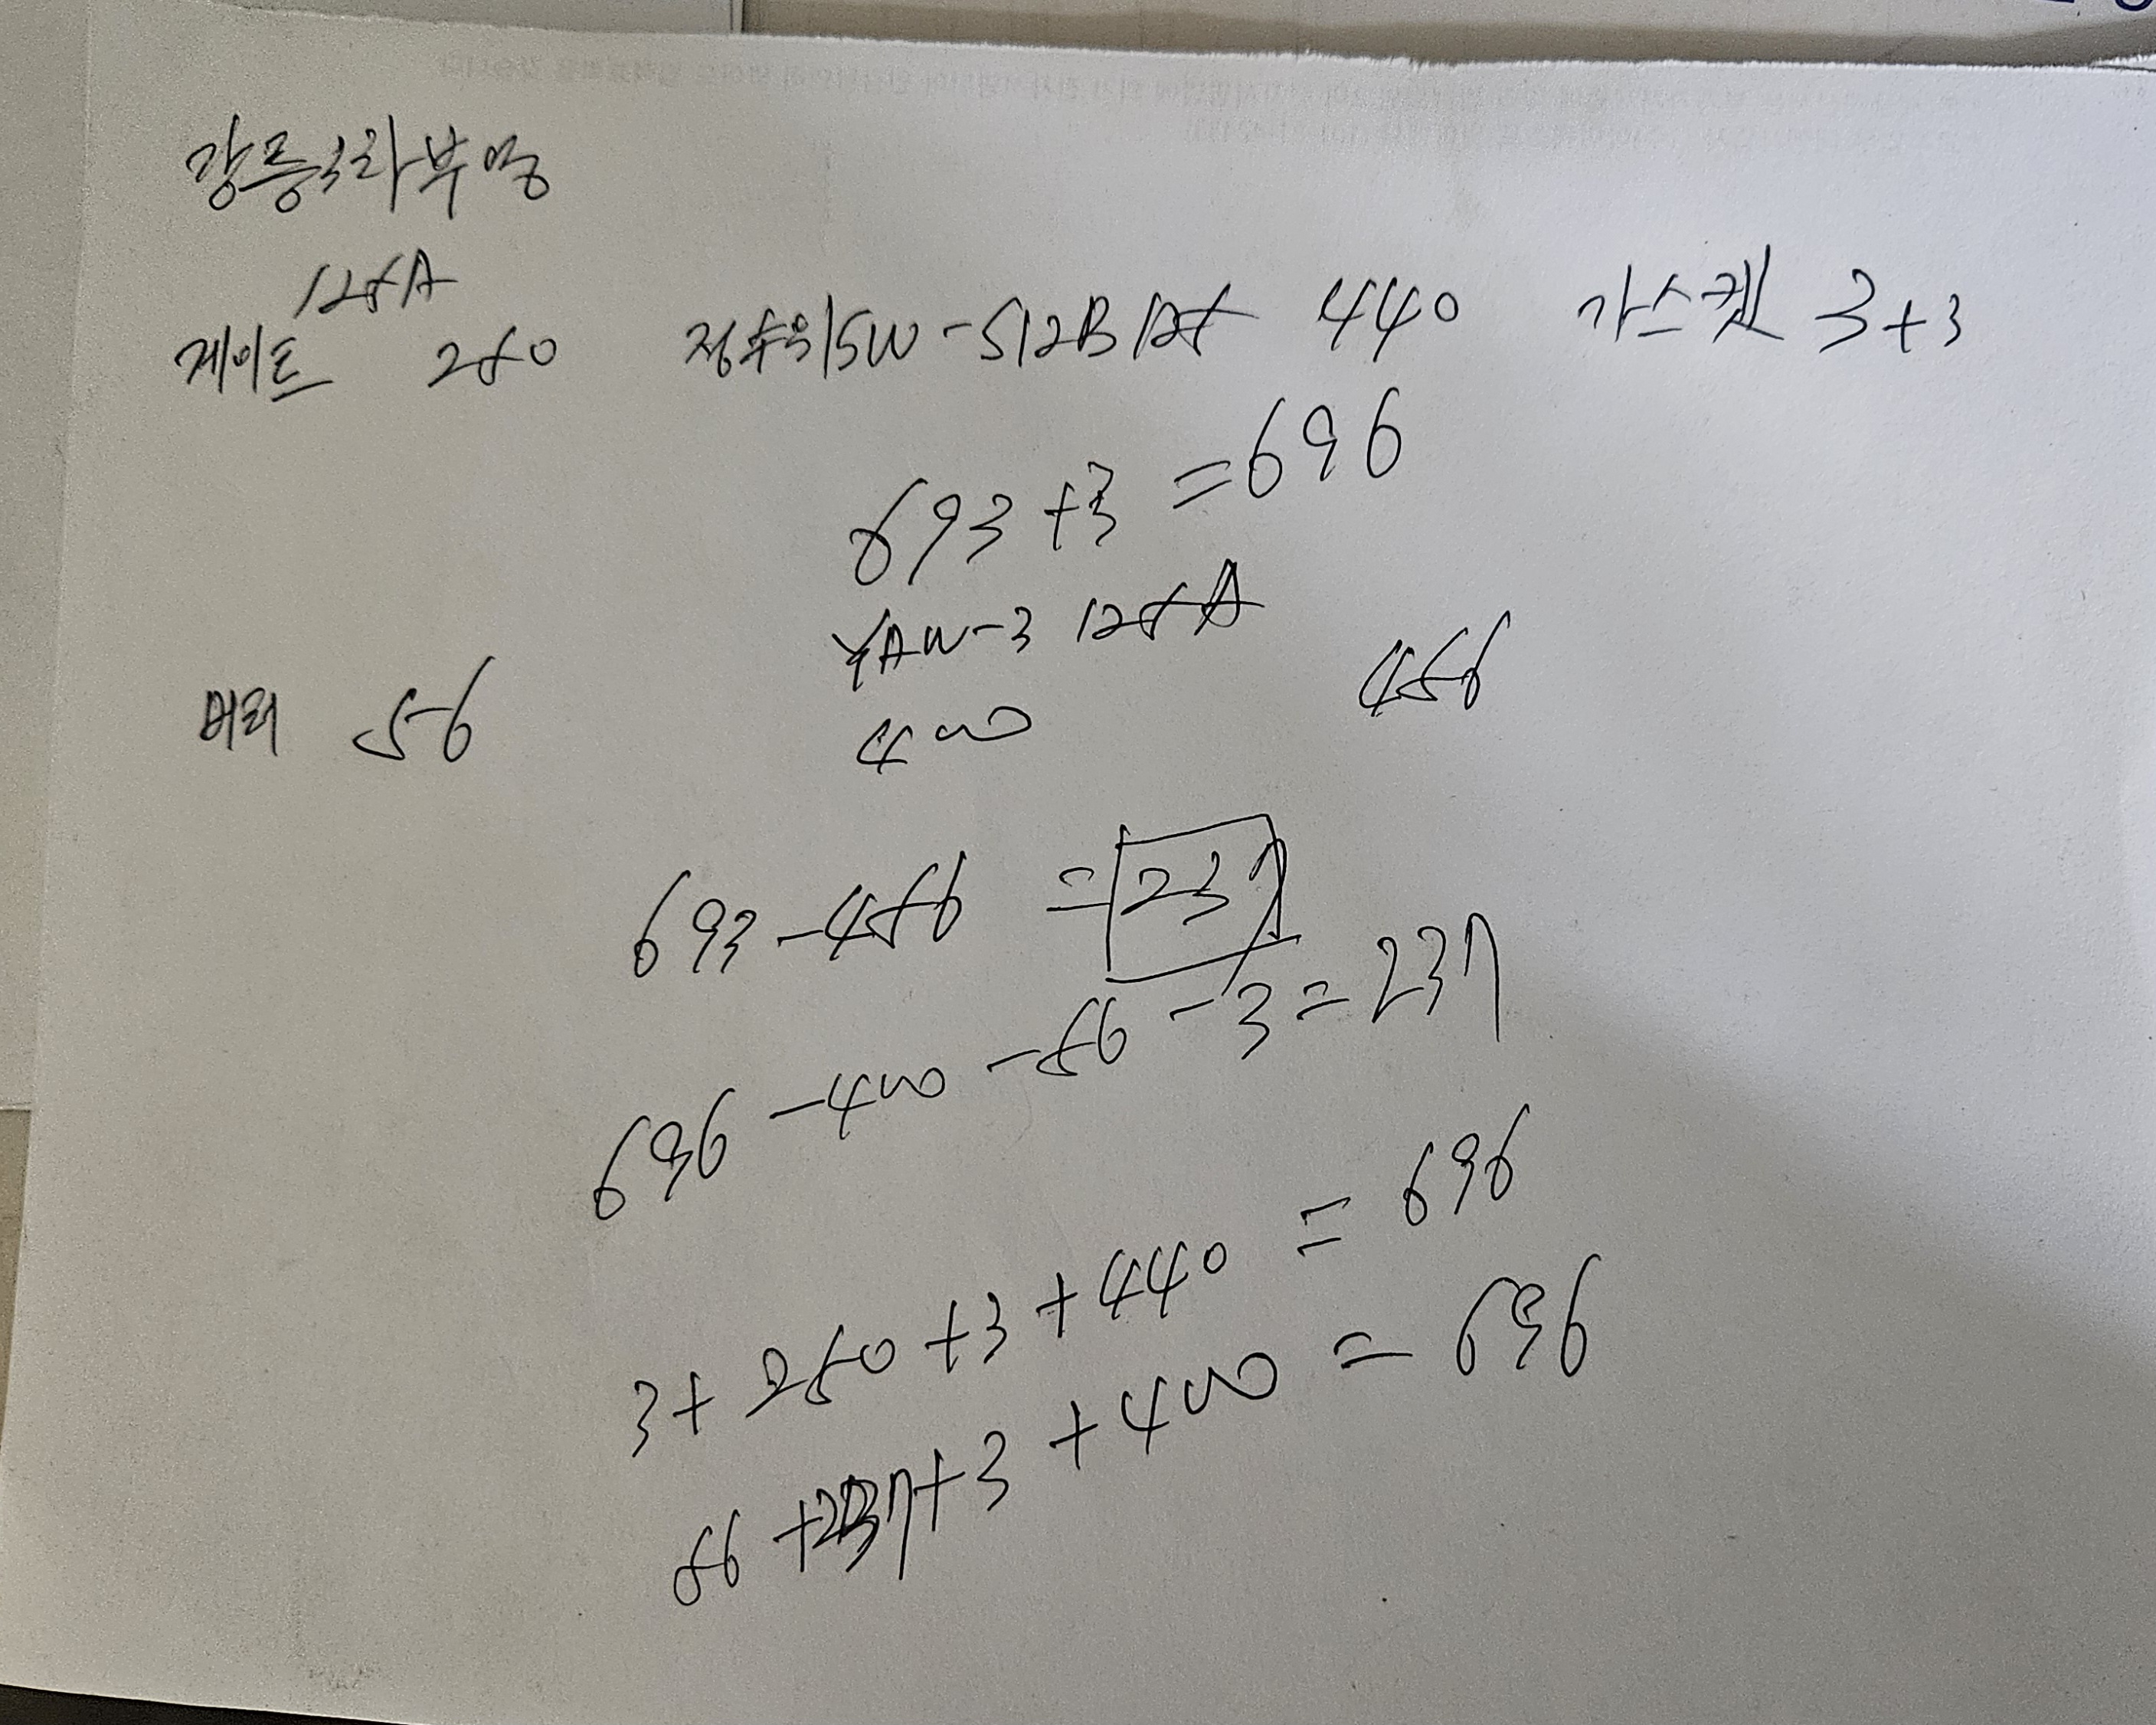 강릉3라부영
125A
게이트 250 정수위 SW-512B 125 440 가스켓 3+3
693+3=696
YAW-3 125A
버터 56 400 456
693-456=237
696-400-56-3=237
3+250+3+440=696
56+237+3+400=696